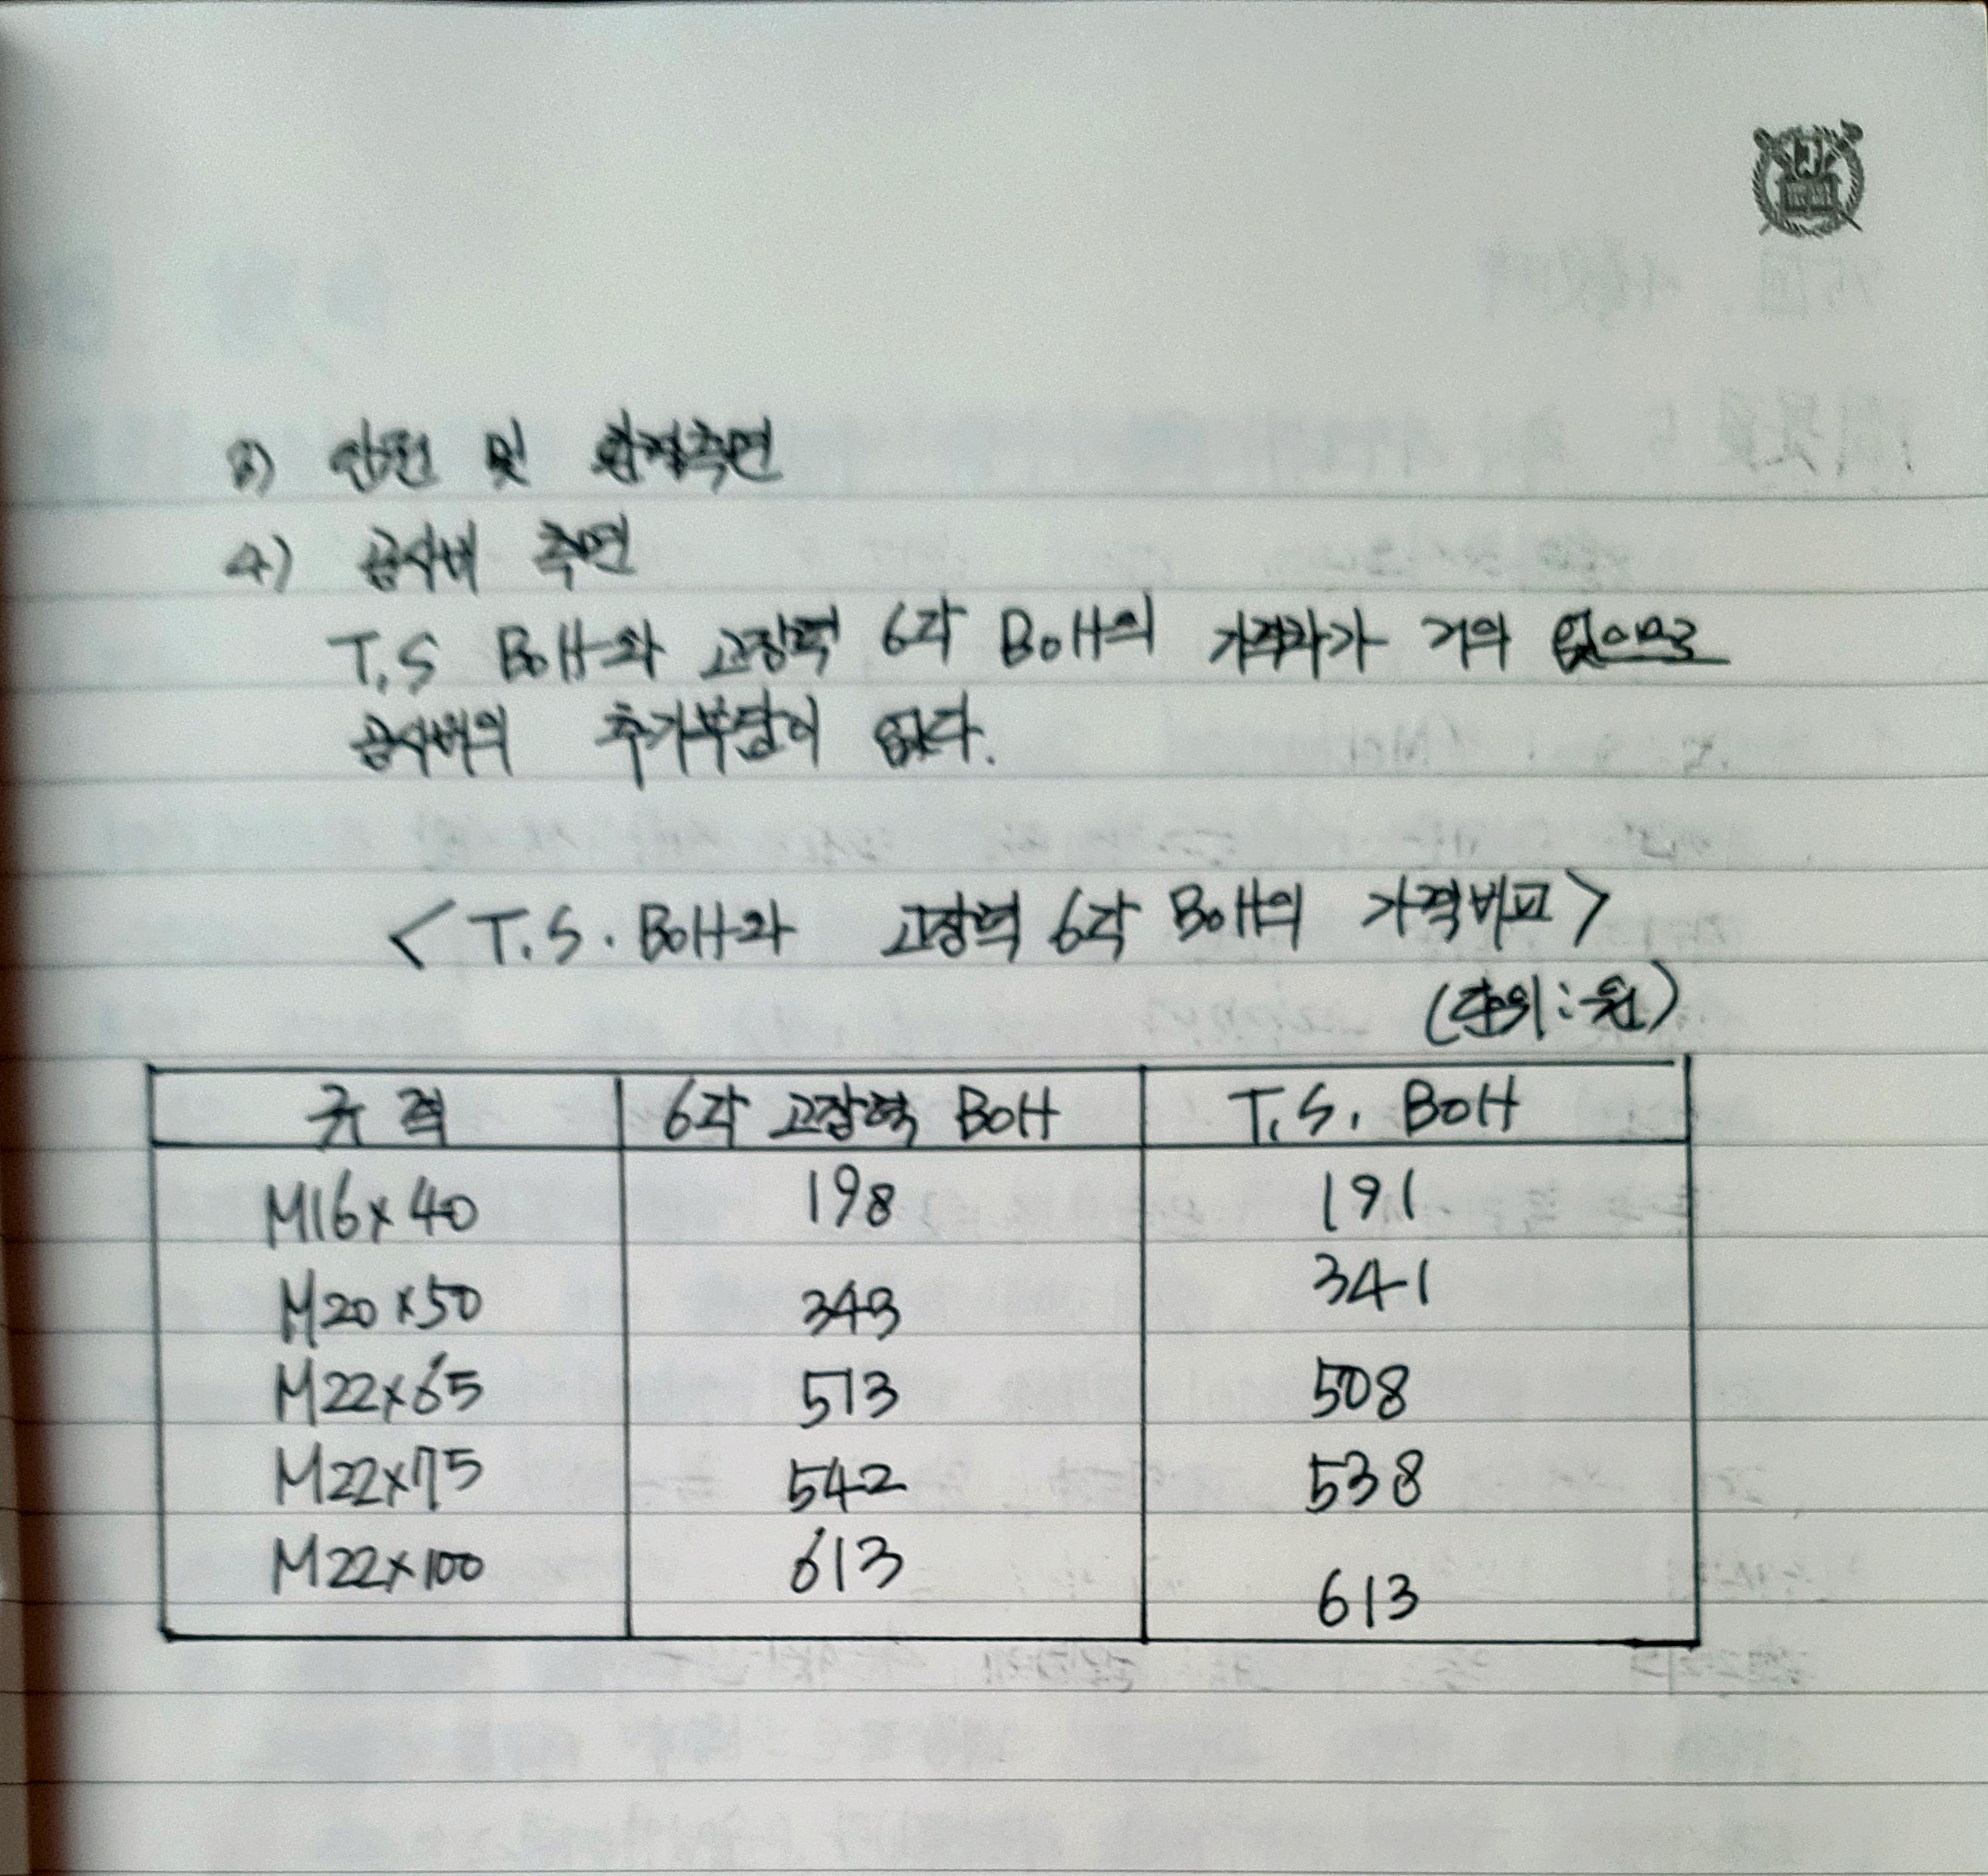 3) 안전 및 환경측면
4) 공사비 측면
T.S Bolt와 고장력 6각 Bolt의 가격차가 거의 없으므로
공사비의 추가부담이 없다.
<T.S. Bolt와 고장력 6각 Bolt의 가격비교>
(단위:원)
규격 6각 고장력 Bolt T.S. Bolt
M16×40 198 191
M20×50 343 341
M22×65 513 508
M22×75 542 538
M22×100 613 613